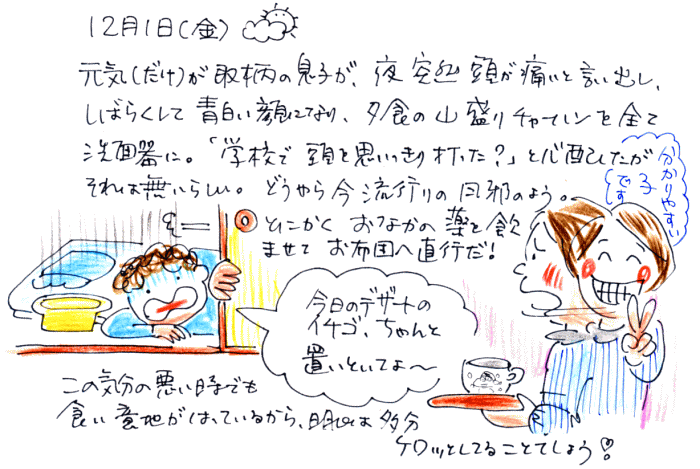 12月1日(金)
元気(だけ)が取柄の息子が、夜突然頭が痛いと言い出し、
しばらくして青白い顔になり、夕食の山盛りチャーハンを全て
洗面器に。「学校で頭を思いっきり打った?」と心配したが
それは無いらしい。どうやら今流行りの風邪のよう。
とにかくおなかの薬を飲
ませてお布団へ直行だ!
分かりやすい
子です
今日のデザートの
イチゴ、ちゃんと
置いといてよ〜
この気分の悪い時でも
食い意地がはっているから、明日は多分
ケロッとしてることでしょう!